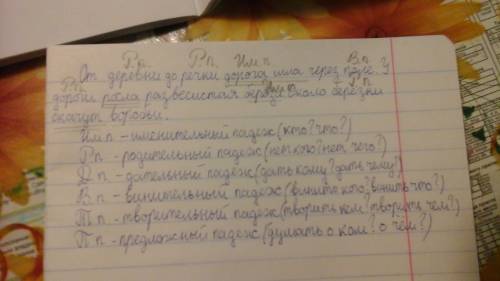 Р.п. Р.п. Им.п. В.п.
От деревни до речки дорога шла через поле. У
Р.п. Им.п. Р.п.
дороги росла развесистая берёза. Около берёзки
скачут воробьи.
Им.п. - именительный падеж (кто? что?)
Р.п. - родительный падеж (нет кого? нет чего?)
Д.п. - дательный падеж (дать кому? дать чему?)
В.п. - винительный падеж (винить кого? винить что?)
Т.п. - творительный падеж (творить кем? творить чем?)
П.п. - предложный падеж (думать о ком? о чём?)